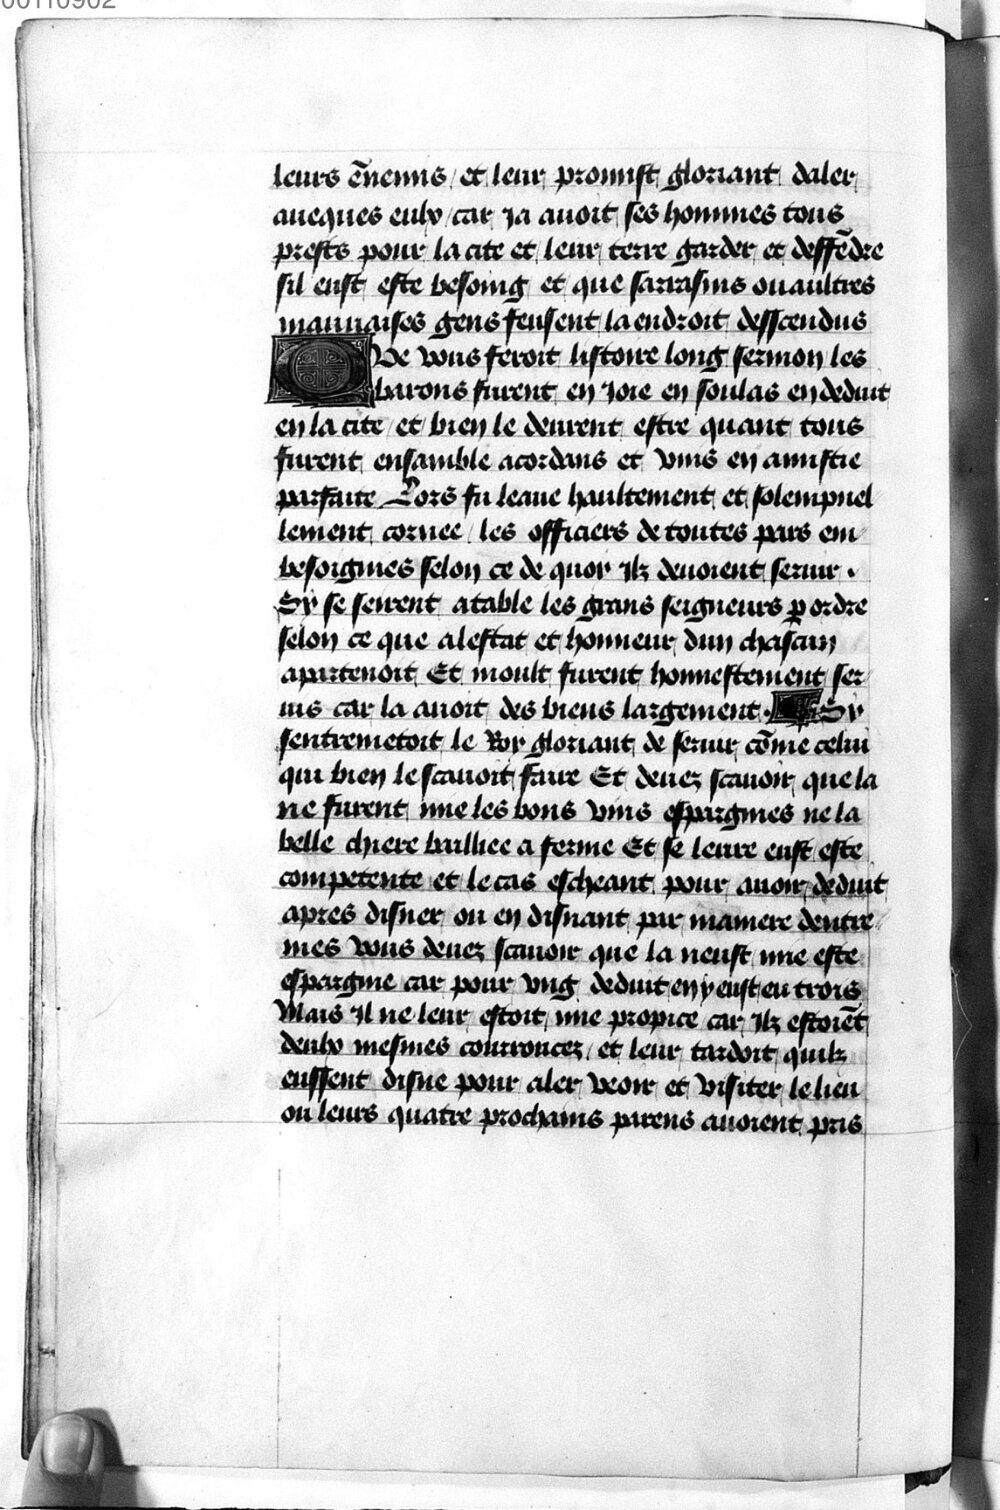 00110902
leurs ēnemis / et leur promist gloriant daler
auecques eulx / car ja auoit ses hommes tous
prests pour la cite et leur terre garder et deffēdre
sil eust este besoing et que sarrasins ou aultres
mauuaises gens feussent la endroit desscendus
Que vous feroit listoire long sermon les
barons furent en joie en soulas en deduit
en la cite / et bien le deurent estre quant tous
furent ensamble acordans et vnis en amistie
parfaite Lors fu leaue haultement et solempnel
lement cornee / les officiers de toutes pars em
besoignies selon ce de quoy ilz deuoient seruir .
Sy se seirent a table les grans seigneurs ꝑ ordre
selon ce que a lestat et honneur dun chascun
apartenoit Et moult furent honnestement ser
uis car la auoit des biens largement . Sy
sentremetoit le Roy gloriant de seruir cōme celui
qui bien le scauoit faire Et deuez scauoir que la
ne furent mie les bons vins espargnies ne la
belle chiere bailliee a ferme Et se leure eust este
competente et le cas escheant pour auoir deduit
apres disner ou en disnant par maniere dentre
mes vous deuez scauoir que la neust mie este
espargnie car pour vng deduit en y eust eu trois
Mais il ne leur estoit mie propice car ilz estoiēt
deulx mesmes courroucez / et leur tardoit quilz
eussent disne pour aler veoir et visiter le lieu
ou leurs quatre prochains parens auoient pris